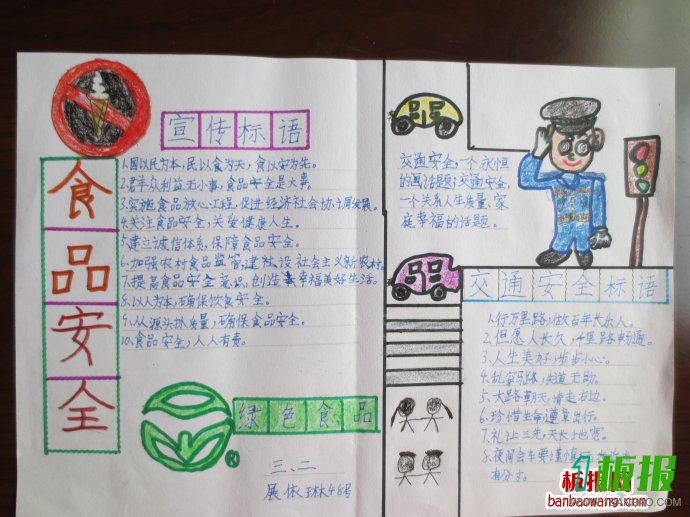 食品安全
宣传标语
1.国以民为本,民以食为天,食以安为先。
2.群众利益无小事,食品安全是大事。
3.实施食品放心工程,促进经济社会协调发展。
4.关注食品安全,关爱健康人生。
5.建立诚信体系,保障食品安全。
6.加强农村食品监管,建设社会主义新农村。
7.提高食品安全意识,创造幸福美好生活。
8.以人为本,确保饮食安全。
9.从源头抓质量,确保食品安全。
10.食品安全,人人有责。
绿色食品
R
三、二
48号
交通安全,一个永恒
的话题;交通安全,
一个关系人生质量、家
庭幸福的话题。
交通安全标语
1.行万里路,做百年长乐人。
2.但愿人长久,千里路畅通。
3.人生美好,步步小心。
4.乱穿马路,失道无助。
5.大路朝天,请走右边。
6.珍惜生命,遵章出行。
7.礼让三先,天长地宽。
8.夜间会车要谨慎
有分寸。
板报网
banbaowang.com
板报